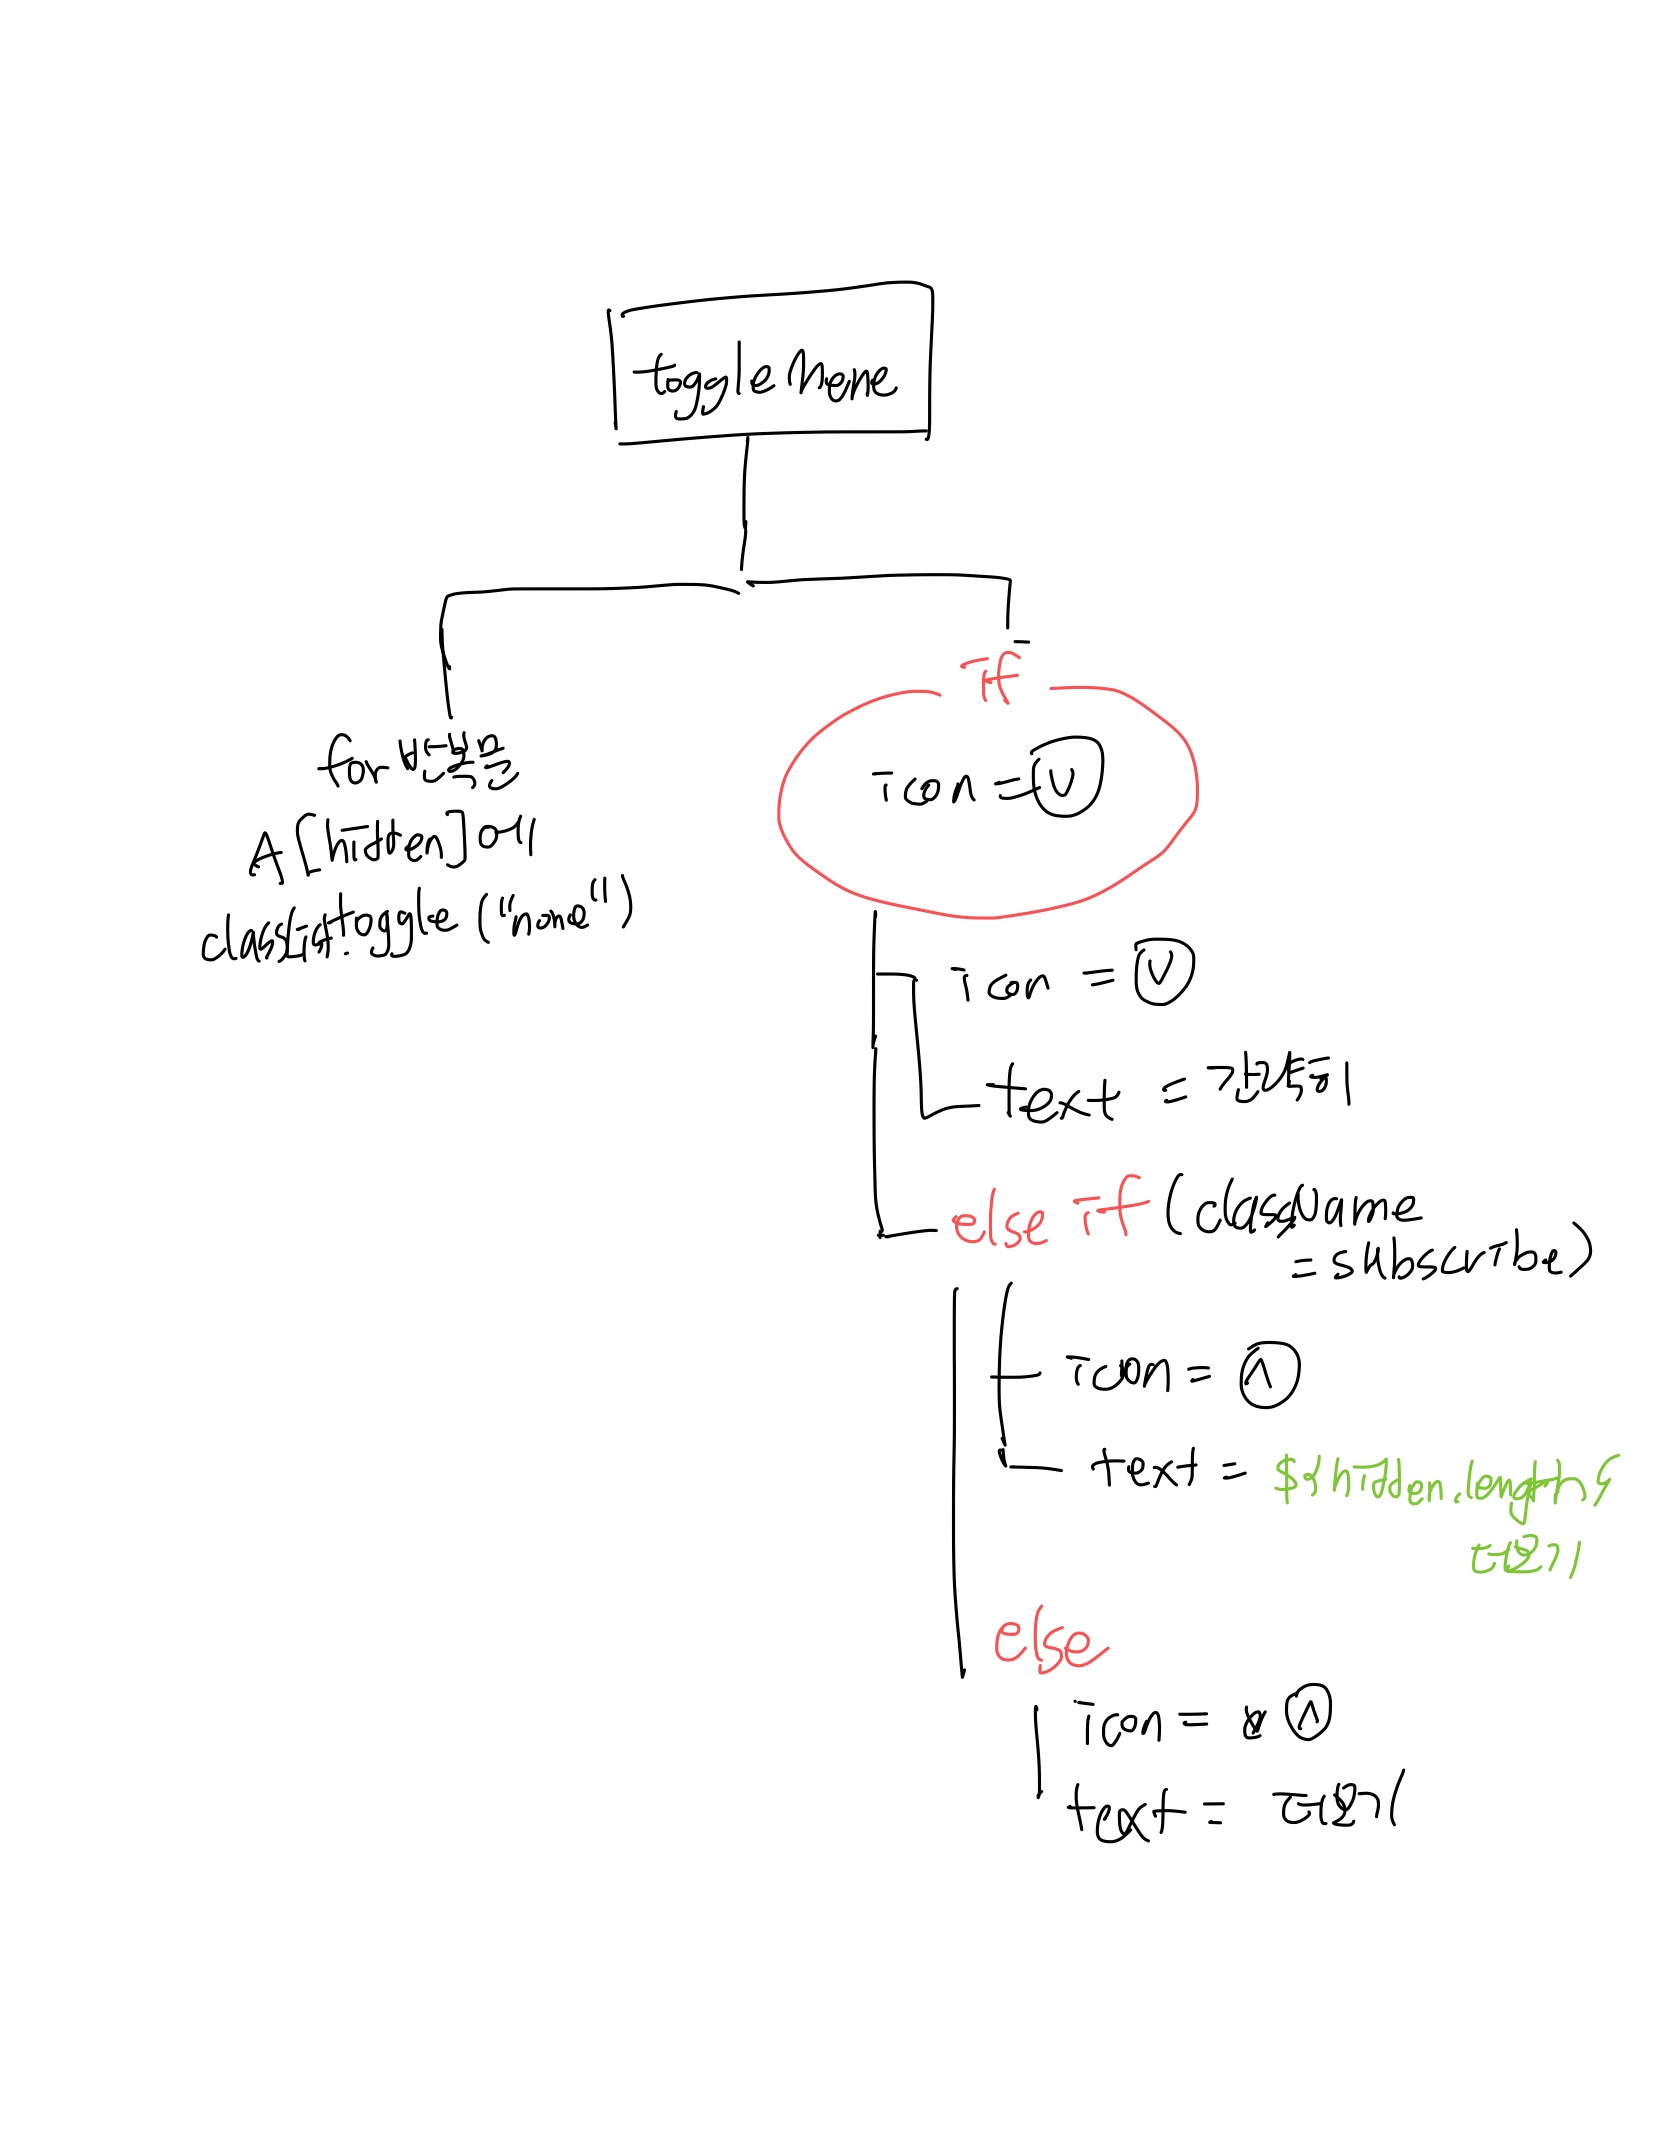 toggleMene
for 반복문
A[hidden]에
classList.toggle ("none")
if
icon = ∨
icon = ∨
text = 간략히
else if (className
= subscribe)
icon = ∧
text = ${hidden.length}
더보기
else
icon = ∧
text = 더보기